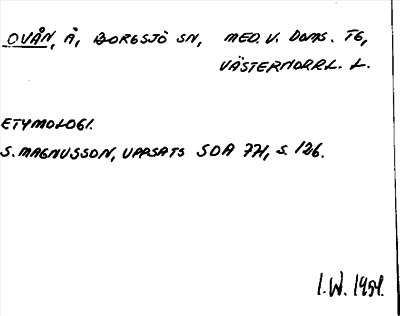 OVÅN, Å, BORGSJÖ SN, MED. V. DOMS. TG,
VÄSTERNORRL. L.
ETYMOLOGI.
S. MAGNUSSON, UPPSATS SOA 771, S. 126.
I.W. 1951.